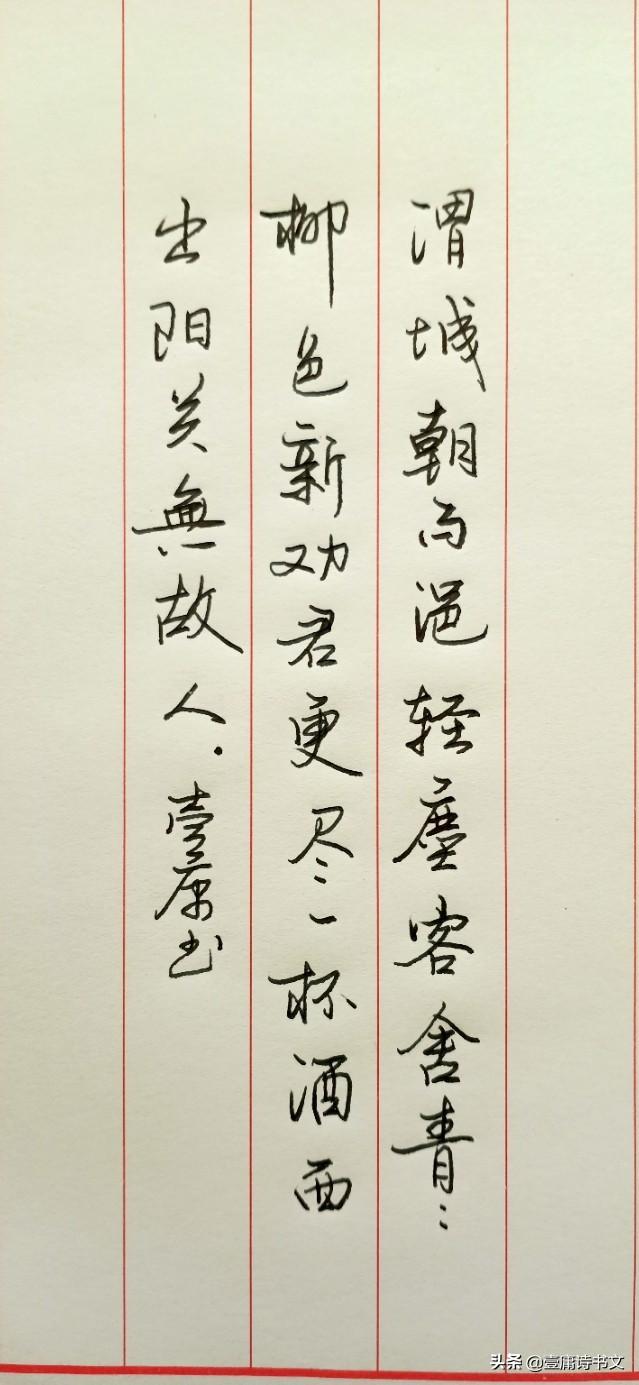 渭城朝雨浥轻塵客舍青〻
柳色新劝君更尽一杯酒西
出阳关無故人.壹庸书
头条 @壹庸诗书文